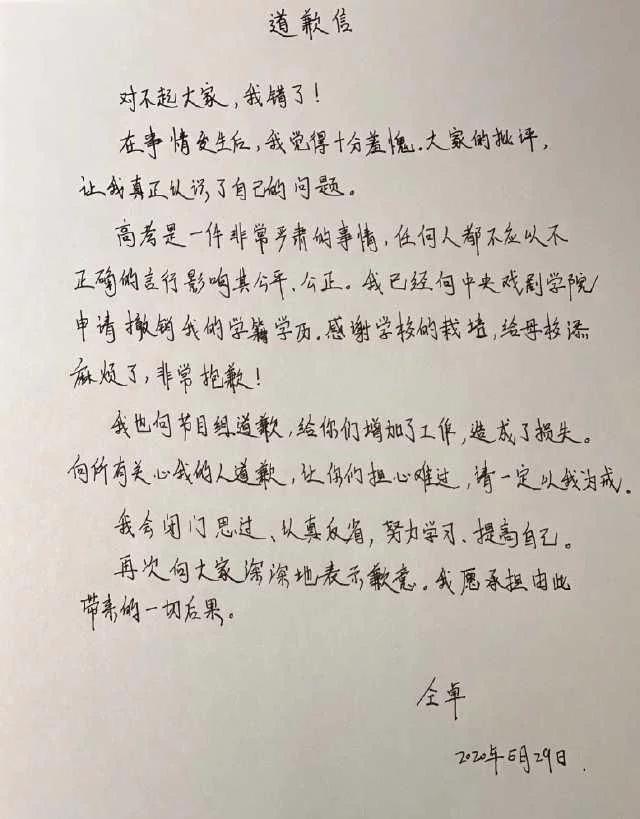 道歉信
对不起大家，我错了！
在事情发生后，我觉得十分羞愧。大家的批评，
让我真正认识了自己的问题。
高考是一件非常严肃的事情，任何人都不应以不
正确的言行影响其公平、公正。我已经向中央戏剧学院
申请撤销我的学籍学历。感谢学校的栽培，给母校添
麻烦了，非常抱歉！
我也向节目组道歉，给你们增加了工作，造成了损失。
向所有关心我的人道歉，让你们担心难过，请一定以我为戒。
我会闭门思过、认真反省，努力学习、提高自己。
再次向大家深深地表示歉意。我愿承担由此
带来的一切后果。
仝卓
2020年6月29日.